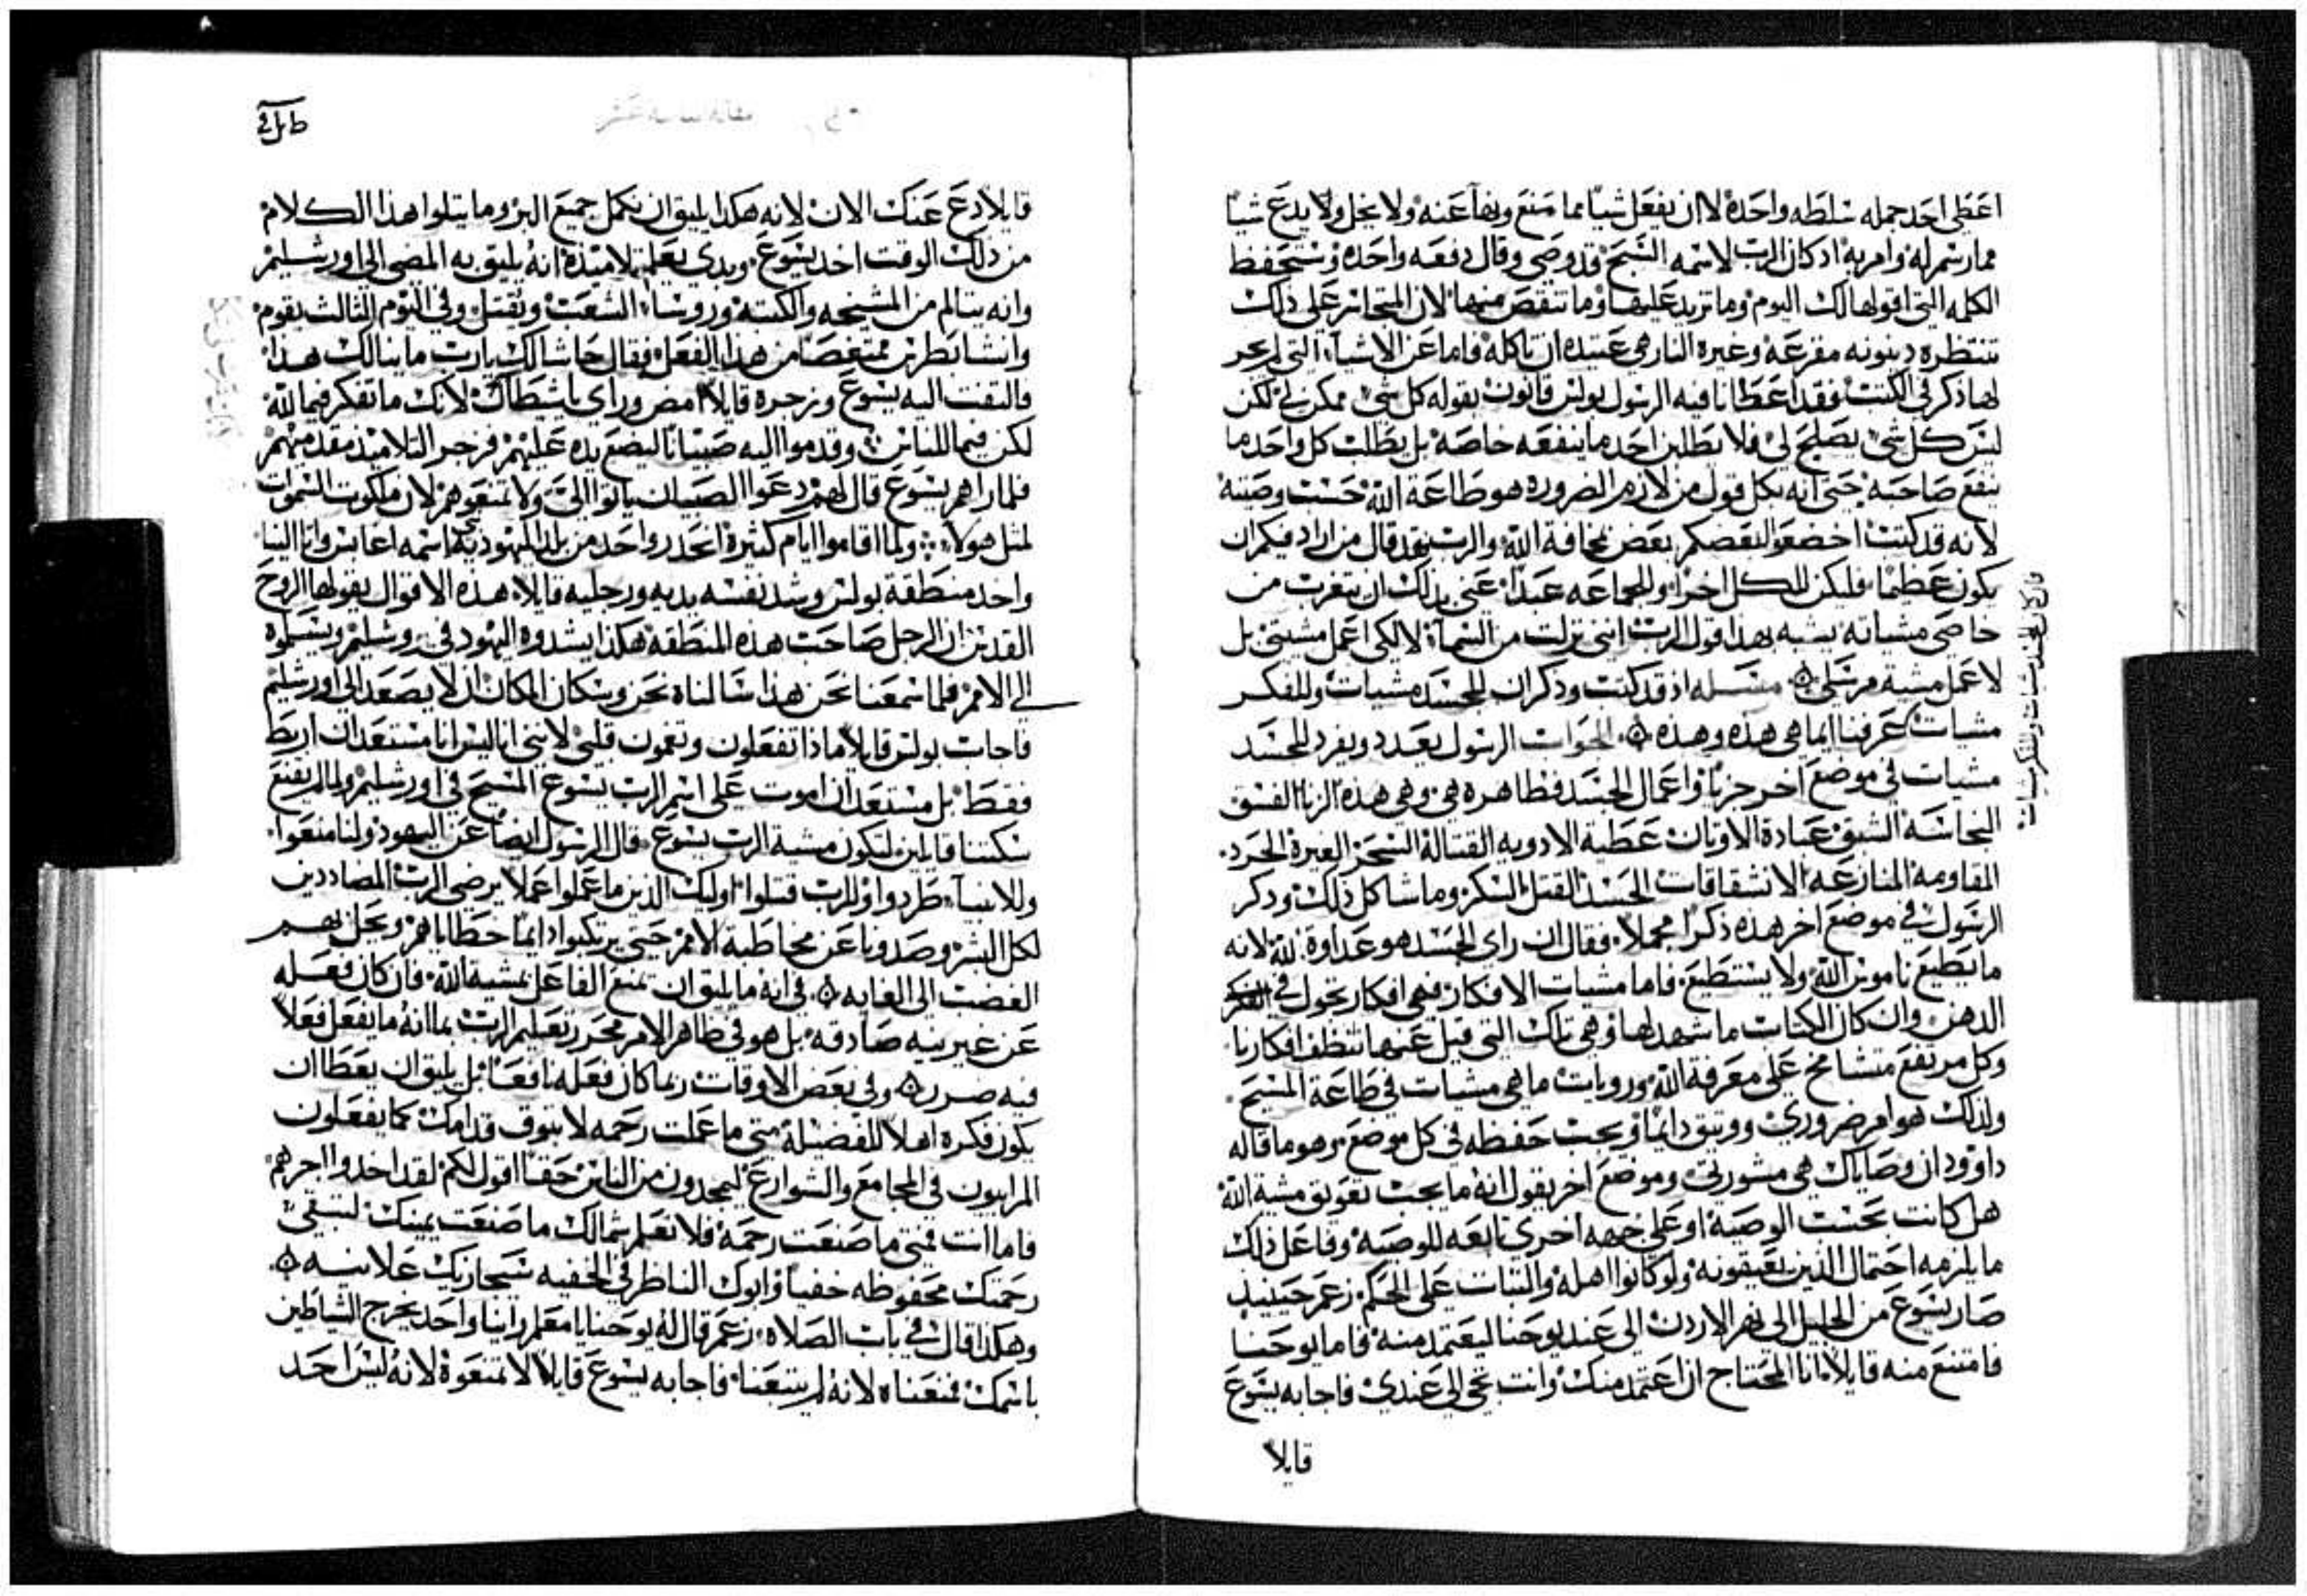 اعطى احد جمله سلطه واحدة لا ان يفعل شيا مما منع ونهآ عنه ولا يخل ولا يدع شيا
مما رسم له وامر به اد كان الرب لاسمه السبح قد وصى وقال دفعه واحده وستحفظ
الكلمه التي اقولها لك اليوم وما تزيد عليها وما تنقص منها لان المتجاسر على ذلك
تنتظره دينونه مفزعه وغيرة النار هي عتيده ان تاكله فاما عن الاشيآ التي لم يجر
لها ذكر في الكتب فقد اعطانا فيه الرسول بولس قانون بقوله كل شي ممكن لي لكن
ليس كل شي يصلح لي فلا يطلبن احد ما ينفعه خاصه بل يطلب كل واحد ما
ينفع صاحبه حتى انه بكل قول من لازم الضروره هو طاعة الله حسب وصيته
لانه قد كتب اخضعوا لبعضكم بعض بمخافة الله والرب فقد قال من اراد فيكم ان
يكون عظيما فليكن للكل اخرا وللجماعه عبدا عني بذلك ان يتغرب من
خاصي مشياته يشبه بهذا قول الرب انني نزلت من السمآ لا لكي اعمل مشيتي بل
لاعمل مشية مرسلي مسله اذ قد كتب وذكر ان للجسد مشيات وللفكر
مشيات عرفنا ايما هي هذه وهذه الجواب الرسول يعدد ويفرد للجسد
مشيات في موضع اخر جزيا واعمال الجسد فظاهره هي وهي هذه الزنا الفسق
النجاسه الشبق عبادة الاوتان عطية الادويه القتالة السحر الغيرة الحرد
المقاومه المنازعه الانشقاقات الحسد القتل السكر وما شاكل ذلك وذكر
الرسول في موضع اخر هذه ذكرا مجملا فقال ان راي الجسد هو عداوة لله لانه
ما يطيع ناموس الله ولا يستطيع فاما مشيات الافكار فهي افكار تجول في
الدهن وان كان الكتاب ما شهد لها وهي تلك التي قيل عنها تنظف افكارنا
وكل مرتفع متشامخ على معرفة الله ورويات ما هي مشيات في طاعة المسيح
ولذلك هو امر ضروري ووتيق دايما ويجب حفظه في كل موضع وهو ما قاله
داوود ان وصاياك هي مشورتي وموضع اخر يقول انه ما يجب تعويق مشية الله
هل كانت بحسب الوصية او على جهه اخرى تابعه للوصية وفاعل ذلك
ما يلزمه احتمال الذين يعيقونه ولو كانوا اهله والتبات على الحكم زعم حينيذ
صار يسوع من الجليل الى نهر الاردن الى عند يوحنا ليعتمد منه فاما يوحنا
فامتنع منه قايلا انا المحتاج ان اعتمد منك وانت تجي الي عندي فاجابه يسوع
قايلا
قايلا دع عنك الان لانه هكذا يليق ان نكمل جميع البر وما يتلوا هذا الكلام
من ذلك الوقت اخد يسوع وبدي يعلم تلاميذه انه يليق به المضي الى اورشليم
وانه يتالم من المشيخه والكتبة وروسا الشعب ويقتل وفي اليوم الثالث يقوم
وانشا بطرس ممتعضا من هذا الفعل فقال حاشا لك يا رب ما ينالك هذا
فالتفت اليه يسوع وزجره قايلا امض وراي يا شيطان لانك ما تفكر فيما لله
لكن فيما للناس وقدموا اليه صبيانا ليضع يده عليهم فزجر التلاميذ مقدميهم
فلما راهم يسوع قال لهم دعوا الصبيان ياتوا الي ولا تمنعوهم لان ملكوت السموات
لمثل هولا ولما اقاموا ايام كثيرة انحدر واحد من بلد اليهودية اسمه اغابس واتا الينا
واخد منطقة بولس وشد نفسه يديه ورجليه قايلا هذه الاقوال يقولها الروح
القدس ان الرجل صاحب هذه المنطقه هكذا يشدوه اليهود في روشليم ويسلموه
الى الامم فلما سمعنا نحن هذا سالناه نحن وسكان المكان ان لا يصعد الى اورشليم
فاجاب بولس قايلا ماذا تفعلون وتغمون قلبي لانني انا ليس انا مستعد ان اربط
فقط بل مستعد ان اموت على اسم الرب يسوع المسيح في اورشليم ولما لم يقنع
سكتنا قايلين لتكون مشية الرب يسوع قال الرسول ايضا عن اليهود ولنا منعوا
وللانبيآ طردوا وللرب قتلوا اوليك الذين ما عملوا عملا يرضي الرب المضاددين
لكل البشر وصدونا عن مخاطبة الامم حتى يرتكبوا دايما خطاياهم ويحل بهم
الغضب الى الغايه في انه ما يليق ان نمنع الفاعل بمشية الله فان كان فعله
عن غير نيه صادقه بل هو في ظاهر الامر محرر تعليم الرب بما انه ما يفعل فعلا
فيه ضرر وفي بعض الاوقات ربما كان فعله نافعا بل يليق ان يعطا ان
يكون فكره اهلا للفضيلة متى ما عملت رحمه لا تبوق قدامك كما يفعلون
المراييون في المجامع والشوارع ليمجدون من الناس حقا اقول لكم لقد اخدوا اجرهم
فاما انت فمتى ما صنعت رحمة فلا تعلم شمالك ما صنعت يمينك لتبقى
رحمتك محفوظه خفيا وابوك الناظر في الخفيه سيجازيك علانيه
وهكذا قال في باب الصلاه زعم قال له يوحنا يا معلم راينا واحد يخرج الشياطين
باسمك فمنعناه لانه لم يتبعنا فاجابه يسوع قايلا لا تمنعوة لانه ليس احد